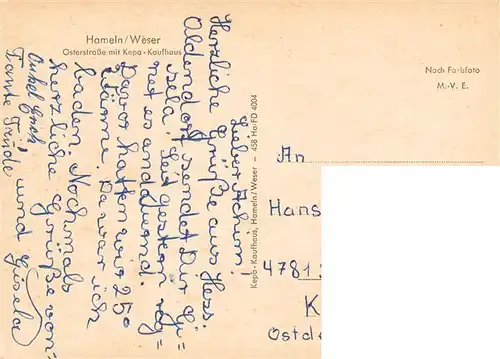 Hameln/Weser
Osterstraße mit Kepa-Kaufhaus
Nach Farbfoto
M.-V. E.
Kepa-Kaufhaus, Hameln/Weser — 458 Ha/FD 4004
Lieber Achim!
Herzliche Grüße aus Hess.
Oldendorf sendet Dir Gi=
sela. Seit gestern reg=
net es andauernd.
Davor hatten wir 25°
Wärme. Da war ich
baden. Nochmals
herzliche Grüße von
Onkel Erich
Tante Trude und Gisela
An
Hans
4781
K
Ostde